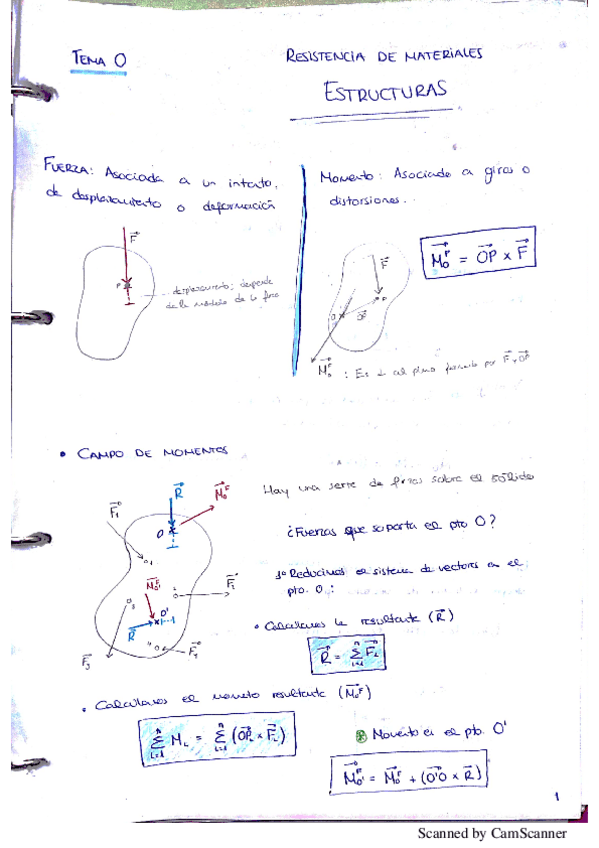 TEMA 0
RESISTENCIA DE MATERIALES
ESTRUCTURAS
FUERZA: Asociada a un intento,
de desplazamiento o deformación
F
P
desplazamiento; depende
de la de la fza
Momento: Asociado a giros o
distorsiones.
M₀ᶠ = OP x F
F
P
O
OP
M₀ᶠ : Es ⊥ al plano formado por F y OP
• CAMPO DE MOMENTOS
R
M₀ᶠ
F₁
O
F₂
M₀'ᶠ
O'
R
F₃
F₄
Hay una serie de fzas sobre el sólido
¿Fuerzas que soporta el pto O?
1º Reducimos el sistema de vectores en el
pto. O:
• Calculamos la resultante (R)
R = Σ Fᵢ
• Calculamos el momento resultante (M₀ᶠ)
Σ Mᵢ = Σ (OPᵢ x Fᵢ)
Momento en el pto. O'
M₀'ᶠ = M₀ᶠ + (O'O x R)
1
Scanned by CamScanner